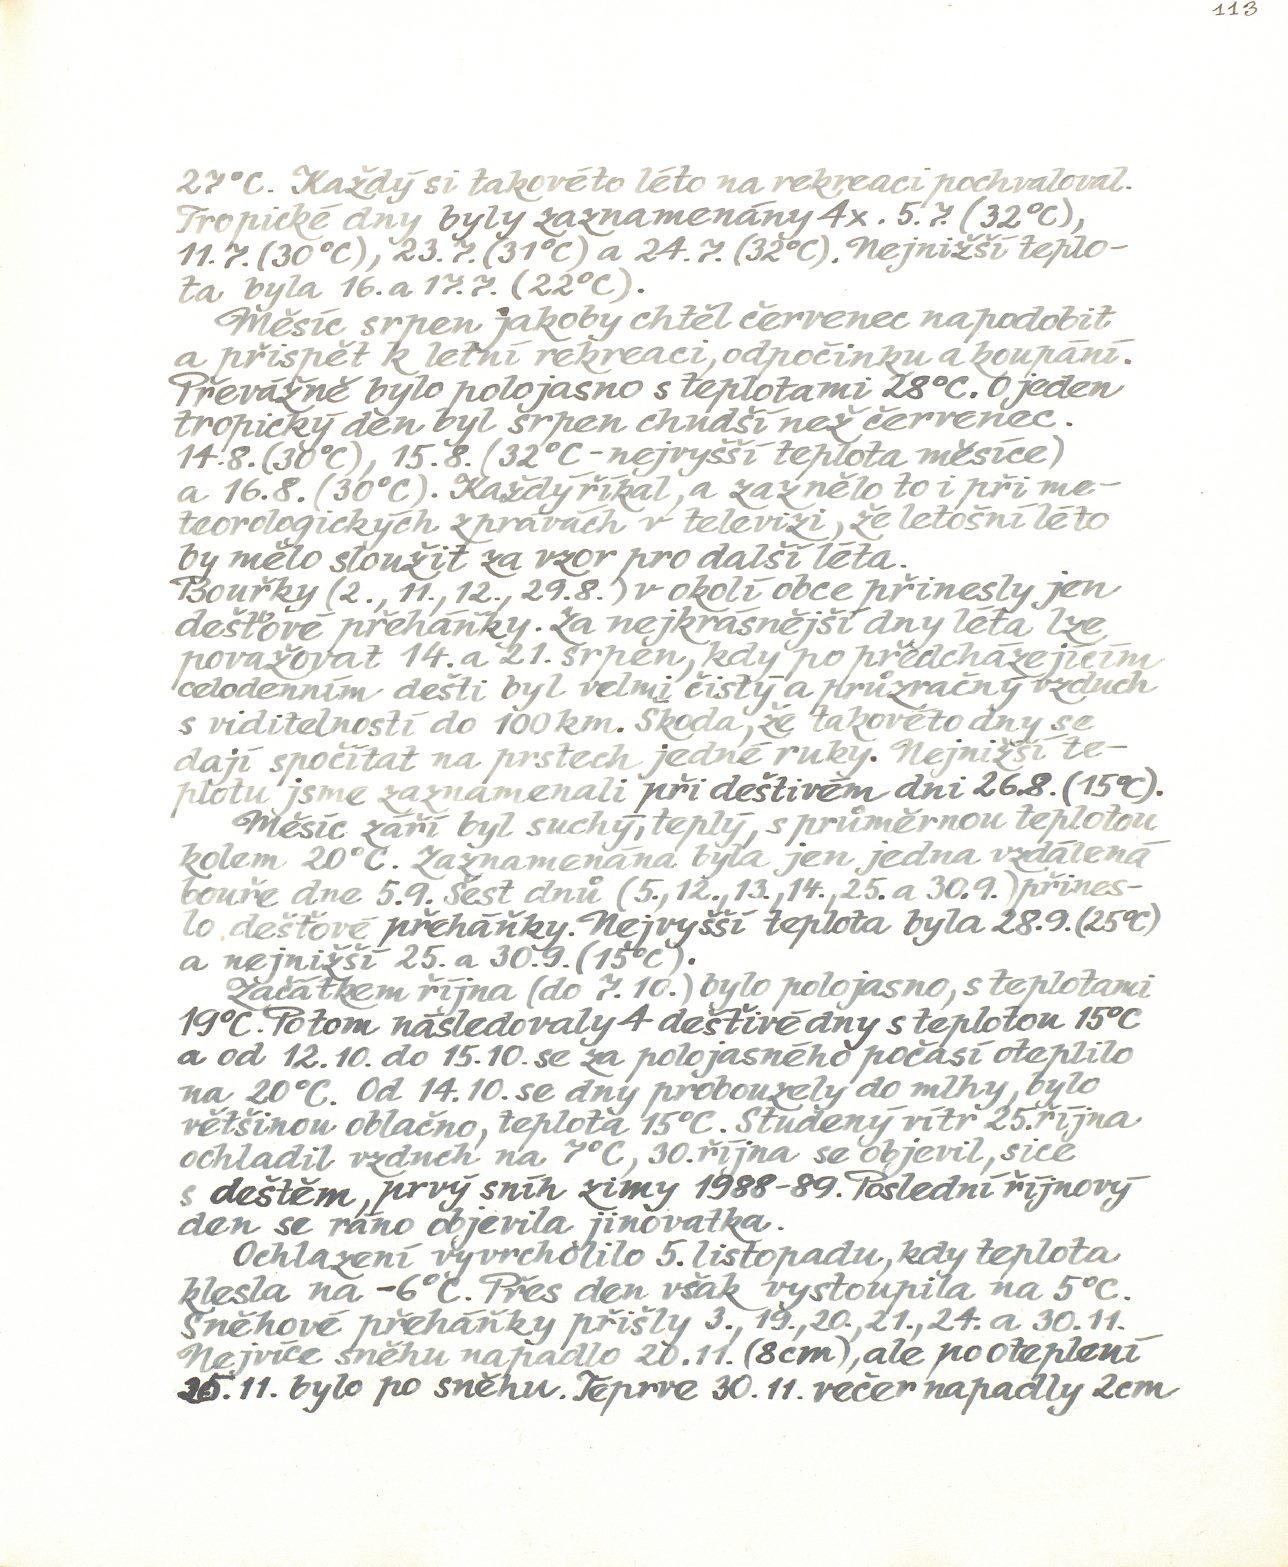 113
27°C. Každý si takovéto léto na rekreaci pochvaloval.
Tropické dny byly zaznamenány 4x. 5.7. (32°C),
11.7. (30°C), 23.7. (31°C) a 24.7. (32°C). Nejnižší teplo-
ta byla 16. a 17.7. (22°C).
Měsíc srpen jakoby chtěl červenec napodobit
a přispět k letní rekreaci, odpočinku a koupání.
Převážně bylo polojasno s teplotami 28°C. O jeden
tropický den byl srpen chudší než červenec.
14.8. (30°C), 15.8. (32°C - nejvyšší teplota měsíce)
a 16.8. (30°C). Každý říkal, a zaznělo to i při me-
teorologických zprávách v televizi, že letošní léto
by mělo sloužit za vzor pro další léta.
Bouřky (2., 11., 12., 29.8.) v okolí obce přinesly jen
dešťové přeháňky. Za nejkrásnější dny léta lze
považovat 14. a 21. srpen, kdy po předcházejícím
celodenním dešti byl velmi čistý a průzračný vzduch
s viditelností do 100 km. Škoda, že takovéto dny se
dají spočítat na prstech jedné ruky. Nejnižší te-
plotu jsme zaznamenali při deštivém dni 26.8. (15°C).
Měsíc září byl suchý, teplý, s průměrnou teplotou
kolem 20°C. Zaznamenána byla jen jedna vzdálená
bouře dne 5.9. Šest dnů (5., 12., 13., 14., 25. a 30.9.) přines-
lo dešťové přeháňky. Nejvyšší teplota byla 28.9. (25°C)
a nejnižší 25. a 30.9. (15°C).
Začátkem října (do 7.10.) bylo polojasno, s teplotami
19°C. Potom následovaly 4 deštivé dny s teplotou 15°C
a od 12.10. do 15.10. se za polojasného počasí oteplilo
na 20°C. Od 14.10. se dny probouzely do mlhy, bylo
většinou oblačno, teplota 15°C. Studený vítr 25. října
ochladil vzduch na 7°C, 30. října se objevil, sice
s deštěm, prvý sníh zimy 1988-89. Poslední říjnový
den se ráno objevila jinovatka.
Ochlazení vyvrcholilo 5. listopadu, kdy teplota
klesla na -6°C. Přes den však vystoupila na 5°C.
Sněhové přeháňky přišly 3., 19., 20., 21., 24. a 30.11.
Nejvíce sněhu napadlo 20.11. (8cm), ale po oteplení
25.11. bylo po sněhu. Teprve 30.11. večer napadly 2cm